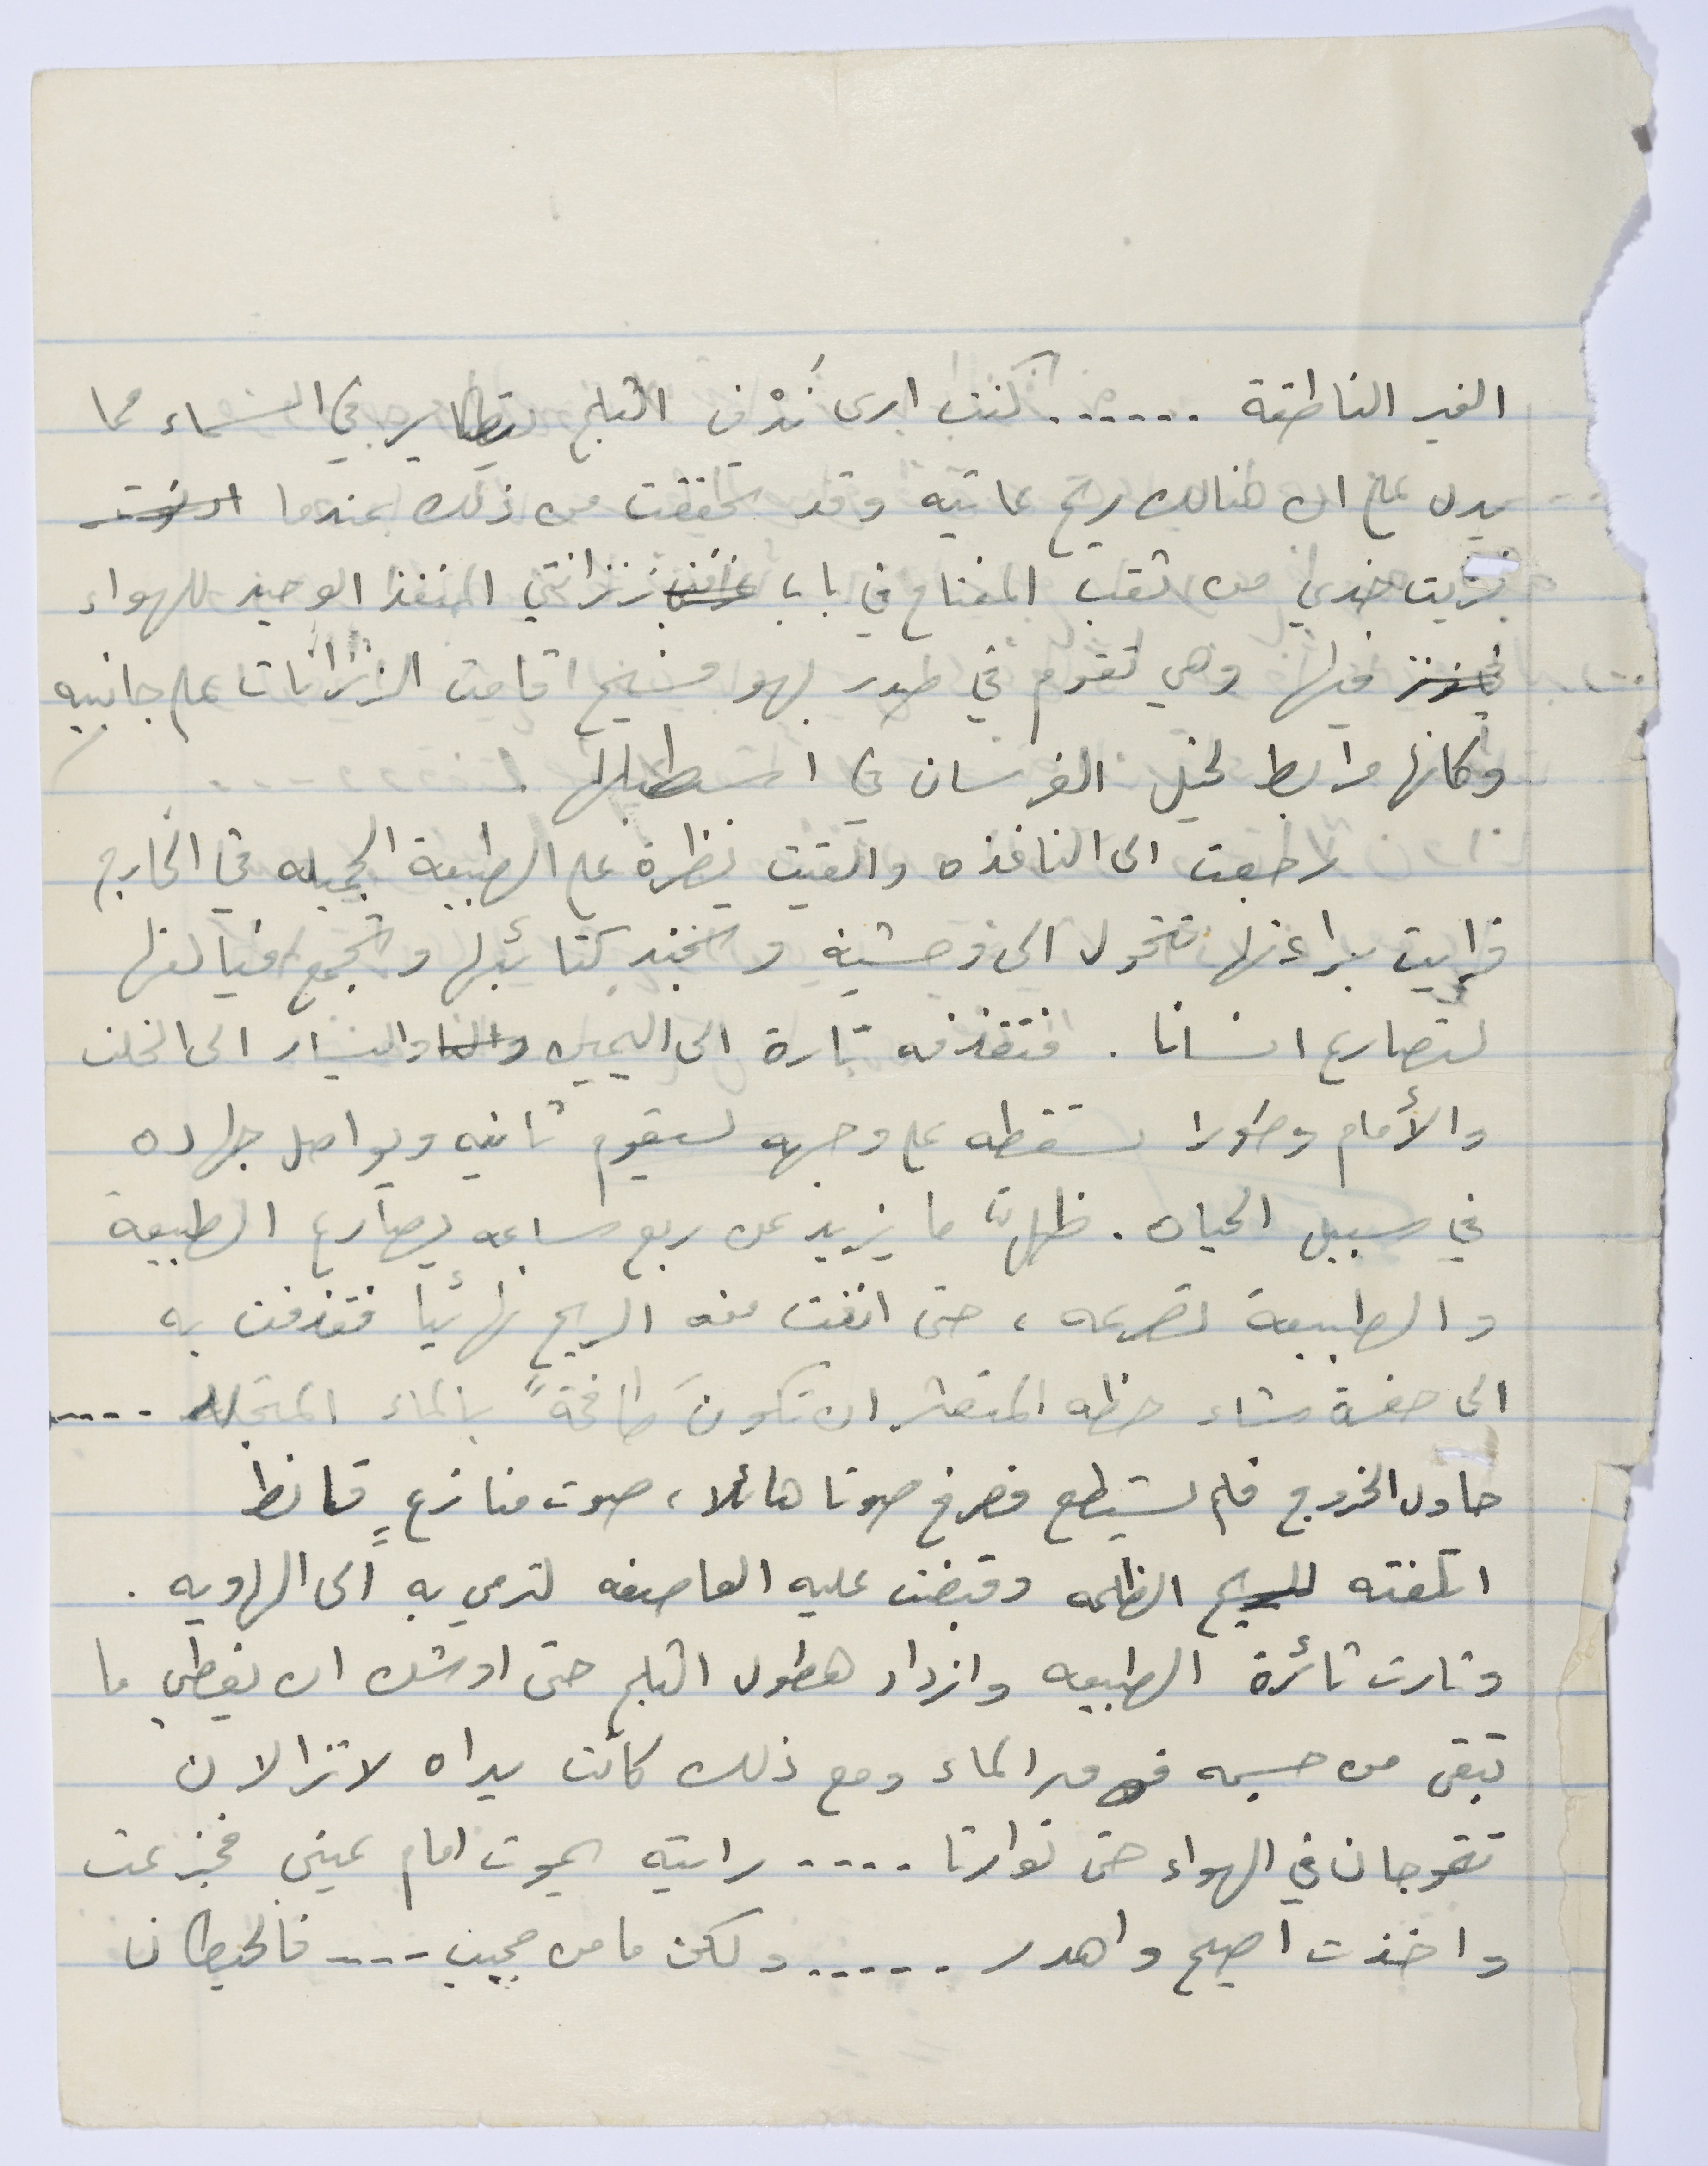 الغير الناطقة ...... كنت ارى نُدْف الثلج يتطاير في السماء مما
يدل على ان هنالك ريح عاتيه وقد تحققت من ذلك عندما
قربت خدي من ثقب المفتاح في باب زنزانتي المنفذ الوحيد للهواء
فيها وهي تقوم في صدر بهو فسيح اقامت الزنزانات على جانبيه
وكانها مرابط لخيل الفرسان في اسطبلها .
رجعت الى النافذه والقيت نظرة على الطبيعة الجميله في الخارج
فرايت براءتها تتحول الى وحشية وتجند كتائبها وتجمع فيالقها
لتصارع انسانا . فتقذفه تارة الى اليمين واليسار الى الخلف
والأمام وطورا تسقطه على وجهه ليقوم ثانيه ويواصل جهاده
في سبيل الحياه . ظل ما يزيد عن ربع ساعه يصارع الطبيعة
والطبيعة تصرعه ، حتى انفت منه الريح نهائيا فقذفت به
الى حفرة شاء حظه المتعثر ان تكونَ طافحةً بالماء المتجلد ....
حاول الخروج فلم يستطع فصرخ صوتا هائلا ، صوت منازعٍ قانط
اتلفته الريح الظالمه وقبضت عليه العاصفه لترمي به الى الهاويه .
وثارت ثائرة الطبيعه وازداد هطول الثلج حتى اوشك ان يغطي ما
تبقى من جسمه فوق الماء ومع ذلك كانت يداه لا تزالان
تتموجان في الهواء حتى توارتا .... رايته يموت امام عيني فجزعت
واخذت اصيح واهدر ..... ولكن ما من مجيب .... فالحيطان